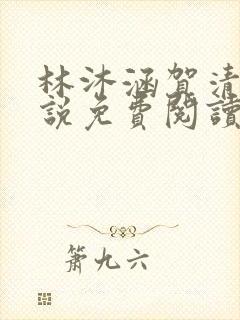 林沐涵賀清
說免費閱讀
簫九六